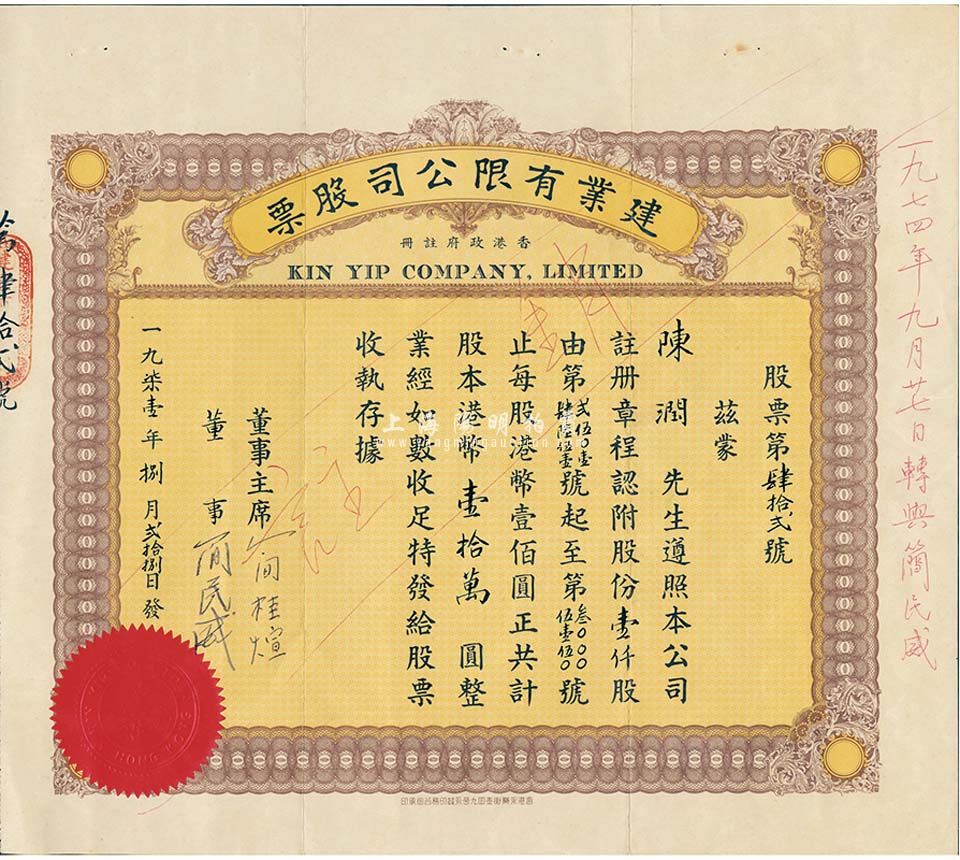 建業有限公司股票
香港政府註冊
KIN YIP COMPANY, LIMITED
股票第肆拾弍號
茲蒙
陳潤先生遵照本公司
註册章程認附股份壹仟股
由第弍伍〇壹號起至第叁〇〇〇號
肆陸伍壹 伍壹伍〇
止每股港幣壹佰圓正共計
股本港幣壹拾萬圓整
業經如數收足特發給股票
收執存據
董事主席 簡桂煊
董事 簡民威
一九柒壹年捌月弍拾捌日發
一九七四年九月廿七日轉與簡民威
肆拾弍號
上海陽明拍賣
HONG KONG